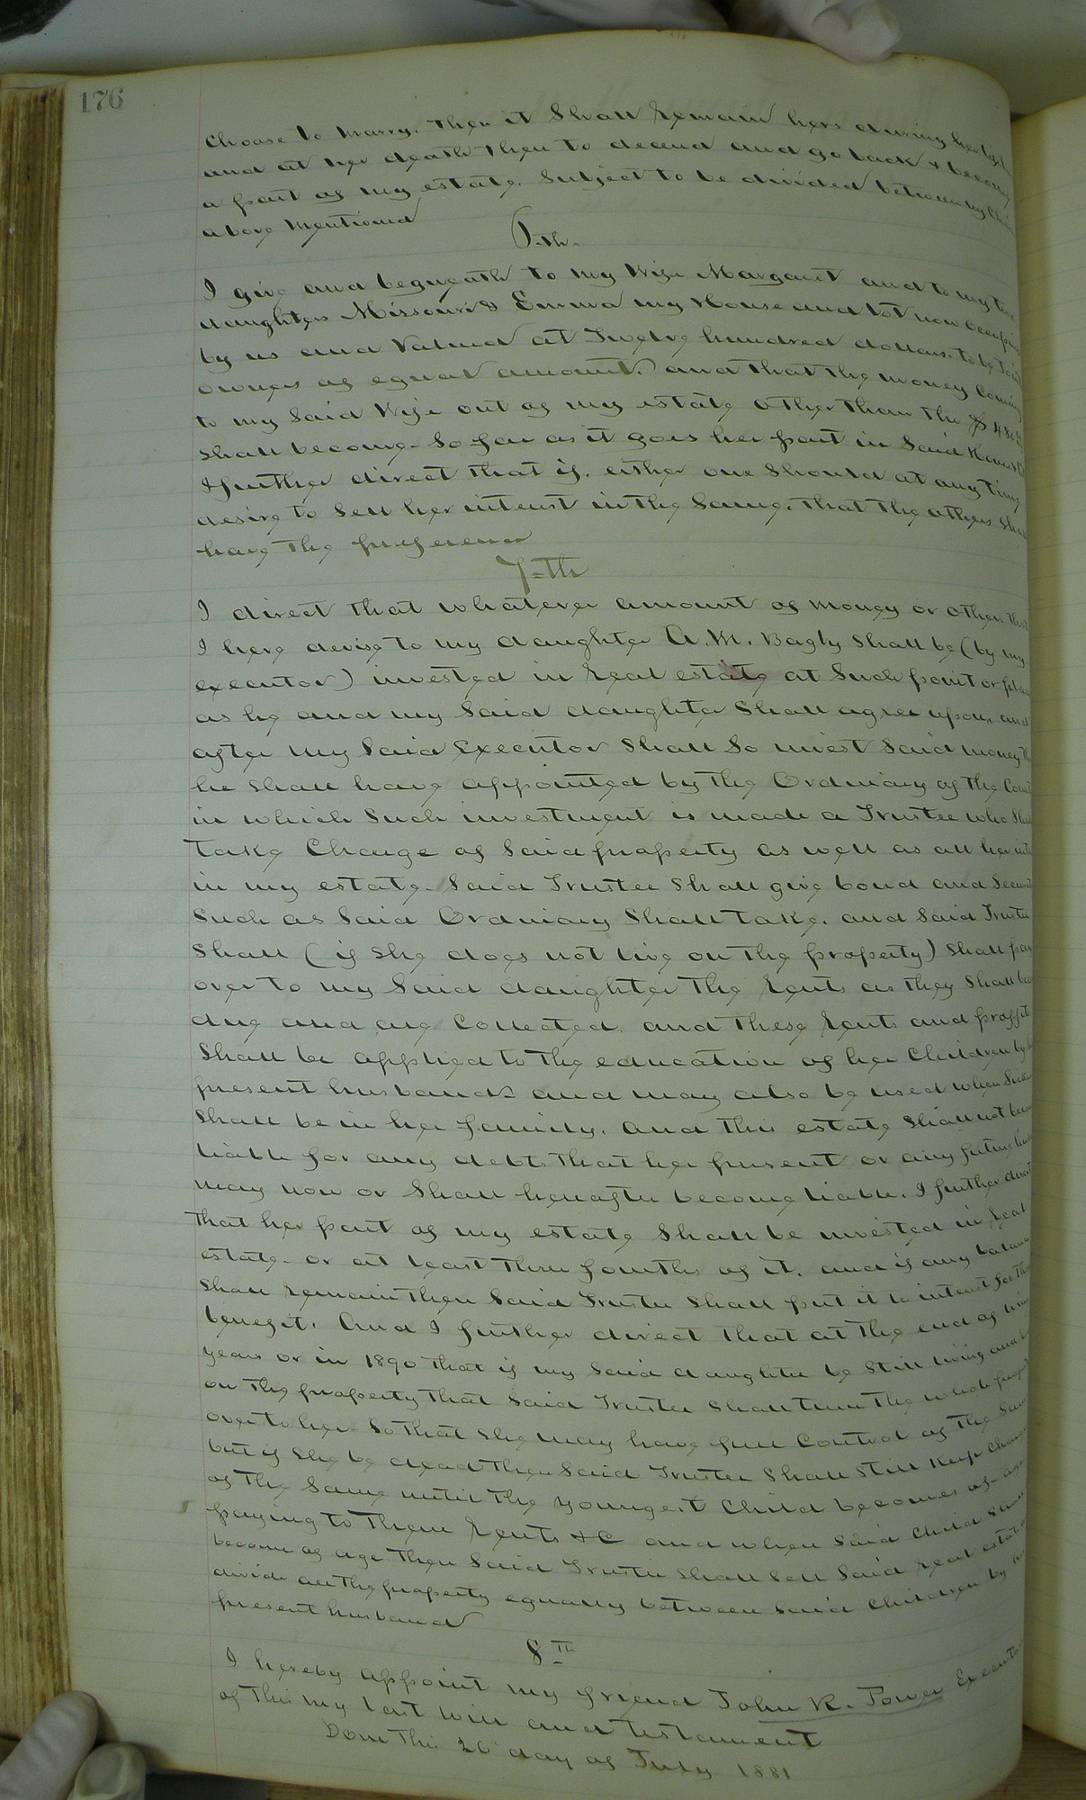 176
Choose to marry. Then it Shall remain hers during her life
and at her death then to decend and go back & become
a part of my estate. Subject to be divided between my
above mentioned
6=th-
I give and bequeath to my Wife Margaret and to my two
daughters Missouri & Emma my House and lot now occupied
by us and Valued at Twelve hundred dollars. to be Joint
owners of equal amount. and that the money Coming
to my Said Wife out of my estate other than the $
Shall become - So far as it goes her part in Said
I further direct that if, either one Should at any time
desire to Sell her interest in the Same. that the others Shall
have the preference
7=th
I direct that whatever amount of money or other
I here devise to my daughter A. M. Bagly Shall be (by my
executor) invested in real estate at Such point or place
as he and my Said daughter Shall agree upon. and
after my Said Executor Shall So invest Said money
he Shall have appointed by the Ordinary of the
in which Such investment is made a Trustee who
take Charge of Said property as well as all her
in my estate. Said Trustee Shall give bond and
Such as Said Ordinary Shall take. and Said Trustee
Shall (if She does not live on the property) Shall pay
over to my Said daughter the rents as they Shall
due and are Collected. and these rents and proffits
Shall be applied to the education of her Children by
present husband and may also be used when
Shall be in her family. And this estate Shall not
liable for any debts that her present or any future
may now or Shall hereafter become liable. I further direct
that her part of my estate Shall be invested in real
estate - or at least three fourths of it. and if any balance
Shall remain then Said Trustee Shall put it to interest for
benefit. And I further direct that at the end of
years or in 1890 that if my Said daughter be Still living and
on the property that Said Trustee Shall turn the whole
over to her So that She may have full Control of the Same
but if She be dead then Said Trustee Shall Still keep Charge
of the Same until the youngest Child becomes of age
paying to them rents &C and when Said Child
become of age then Said Trustee Shall Sell Said real estate
divide all the property equally between Said Children by
present husband
8th
I hereby appoint my friend John R. Power Executor
of this my last will and testament
Done this 26 day of July 1881